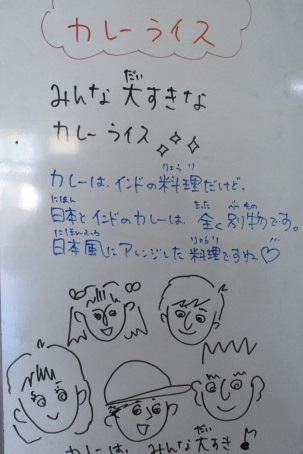 カレーライス
みんな大すきな
カレーライス
カレーは、インドの料理だけど、
日本とインドのカレーは全く別物です。
日本風にアレンジした料理ですね♡
カレーは、みんな大すき♪